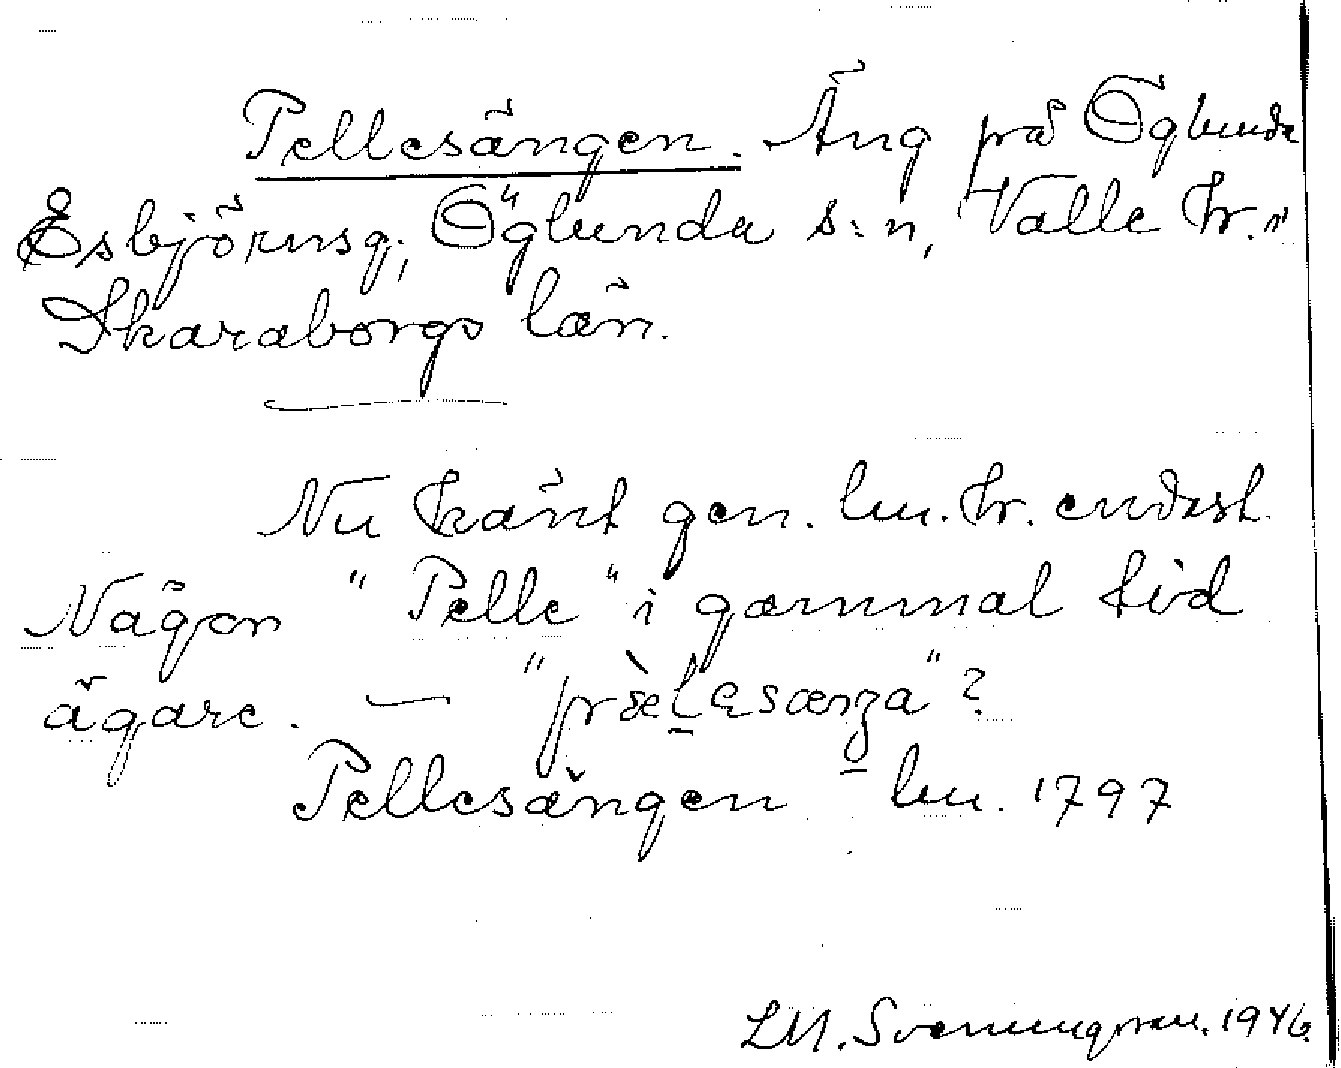 Pellesängen. Äng på Öglunda
Esbjörnsg; Öglunda s:n, Valle hr. i
Skaraborgs län.
Nu känt gen. lm. hr. endast.
Någon "Pelle" i gammal tid
ägare. —
Pellesängen lm. 1797
LM. Svenungsson. 1946.